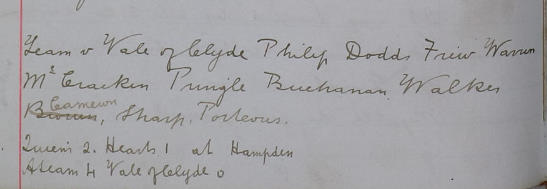 Team v Vale of Clyde Philip Dodds Friw Warren
Mc Cracken Pringle Buchanan Walker
Cameron
Brown, Sharp, Porteous.
Queens 2. Hearts 1 at Hampden
A team 4 Vale of Clyde 0